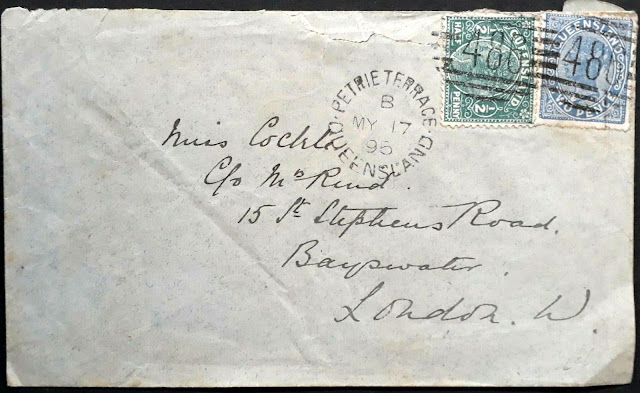 PETRIE TERRACE
B
MY 17
95
QUEENSLAND
QUEENSLAND
½ ½
PENNY
480
QUEENSLAND
PEN
480
Miss Cockle
C/o Mrs Rend.
15 St Stephens Road.
Bayswater.
London. W.